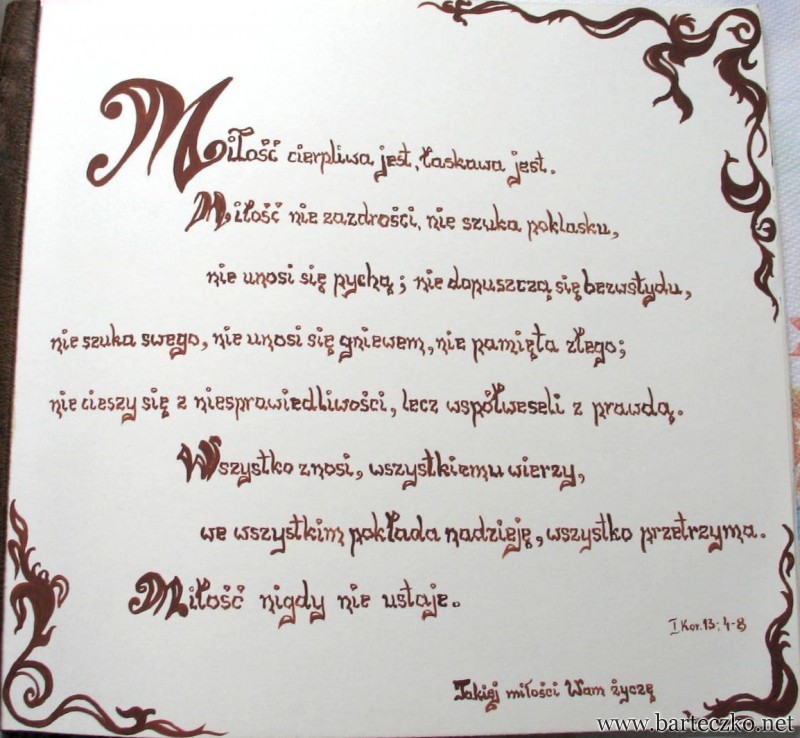 Miłość cierpliwa jest, łaskawa jest.
Miłość nie zazdrości, nie szuka poklasku,
nie unosi się pychą; nie dopuszczą się bezwstydu,
nie szuka swego, nie unosi się gniewem, nie pamięta złego;
nie cieszy się z niesprawiedliwości, lecz współweseli z prawdą.
Wszystko znosi, wszystkiemu wierzy,
we wszystkim pokłada nadzieję, wszystko przetrzyma.
Miłość nigdy nie ustaje.
I Kor. 13; 4-8
Takiej miłości Wam życzę
www.barteczko.net